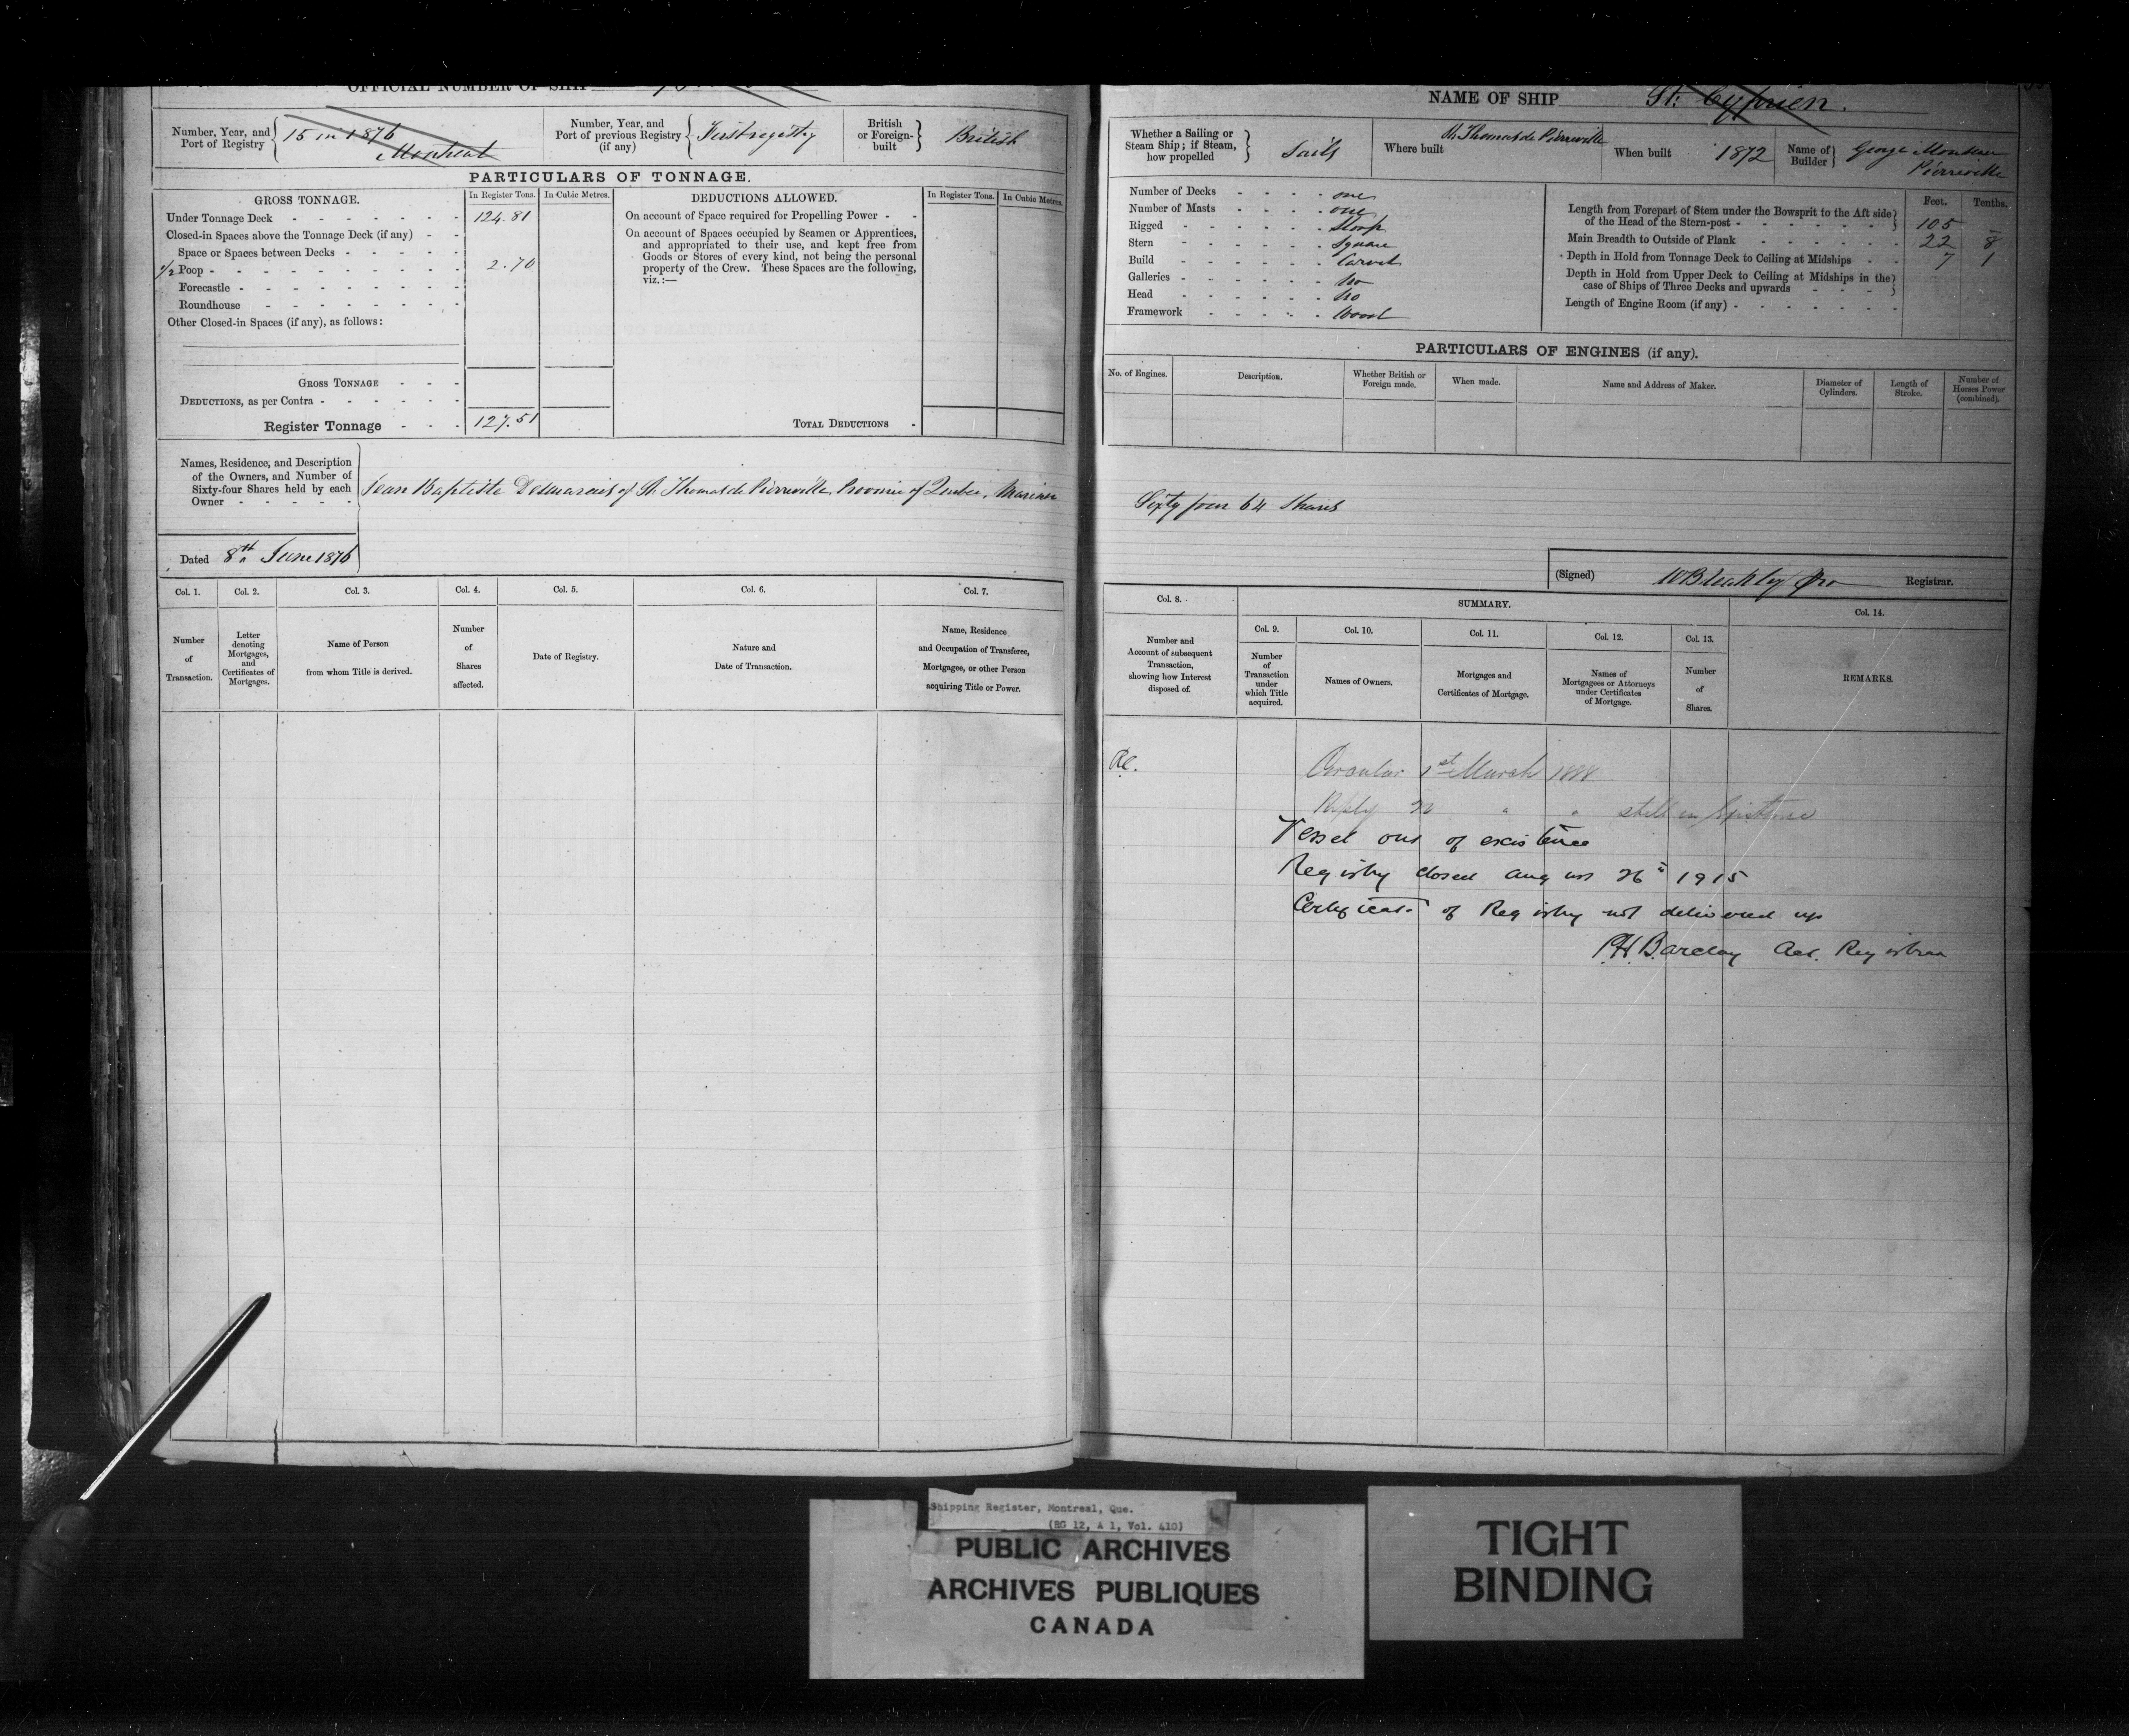 OFFICIAL NUMBER OF SHIP
Number, Year, and Port of Registry { 15 in 1876 Montreal
Number, Year, and Port of previous Registry (if any) { First registry
British or Foreign-built } British
PARTICULARS OF TONNAGE.
GROSS TONNAGE.
In Register Tons. In Cubic Metres.
Under Tonnage Deck - - - - - - - 124.81
Closed-in Spaces above the Tonnage Deck (if any) - -
Space or Spaces between Decks - - - - -
1/2 Poop - - - - - - - - - - 2.70
Forecastle - - - - - - - - -
Roundhouse - - - - - - - -
Other Closed-in Spaces (if any), as follows:
GROSS TONNAGE - - -
DEDUCTIONS, as per Contra - - - - - -
Register Tonnage - - - 127.51
DEDUCTIONS ALLOWED.
In Register Tons. In Cubic Metres.
On account of Space required for Propelling Power - -
On account of Spaces occupied by Seamen or Apprentices,
and appropriated to their use, and kept free from
Goods or Stores of every kind, not being the personal
property of the Crew. These Spaces are the following,
viz.:—
TOTAL DEDUCTIONS -
Names, Residence, and Description
of the Owners, and Number of
Sixty-four Shares held by each
Owner - - - - -
Jean Baptiste Desmarais of St. Thomas de Pierreville, Province of Quebec, Mariner
Dated 8th June 1876
Col. 1. Col. 2. Col. 3. Col. 4. Col. 5. Col. 6. Col. 7.
Number of Transaction.
Letter denoting Mortgages, and Certificates of Mortgages.
Name of Person from whom Title is derived.
Number of Shares affected.
Date of Registry.
Nature and Date of Transaction.
Name, Residence and Occupation of Transferee, Mortgagee, or other Person acquiring Title or Power.
NAME OF SHIP St. Cyprien.
Whether a Sailing or Steam Ship; if Steam, how propelled } Sails
Where built St. Thomas de Pierreville
When built 1872
Name of Builder } George Pierreville
Number of Decks - - - - one
Number of Masts - - - - one
Rigged - - - - - - Sloop
Stern - - - - - - Square
Build - - - - - - Carvel
Galleries - - - - - - No
Head - - - - - - No
Framework - - - - - Wood
Feet. Tenths.
Length from Forepart of Stem under the Bowsprit to the Aft side
of the Head of the Stern-post - - - - - - - 105 -
Main Breadth to Outside of Plank - - - - - - 22 8
Depth in Hold from Tonnage Deck to Ceiling at Midships - - 7 1
Depth in Hold from Upper Deck to Ceiling at Midships in the
case of Ships of Three Decks and upwards - - -
Length of Engine Room (if any) - - - - - - -
PARTICULARS OF ENGINES (if any).
No. of Engines.
Description.
Whether British or Foreign made.
When made.
Name and Address of Maker.
Diameter of Cylinders.
Length of Stroke.
Number of Horses Power (combined).
Sixty four 64 Shares
(Signed) WBleakley pro Registrar.
Col. 8. SUMMARY. Col. 14.
Col. 9. Col. 10. Col. 11. Col. 12. Col. 13.
Number and Account of subsequent Transaction, showing how Interest disposed of.
Number of Transaction under which Title acquired.
Names of Owners.
Mortgages and Certificates of Mortgage.
Names of Mortgagees or Attorneys under Certificates of Mortgage.
Number of Shares.
REMARKS.
Circular 1st March 1888
Reply " " still in Existence
Vessel out of existence
Registry closed August 26" 1915
Certificate of Registry not delivered up
P.H. Barclay Act. Registrar
Shipping Register, Montreal, Que.
(RG 12, A 1, Vol. 410)
PUBLIC ARCHIVES
ARCHIVES PUBLIQUES
CANADA
TIGHT
BINDING